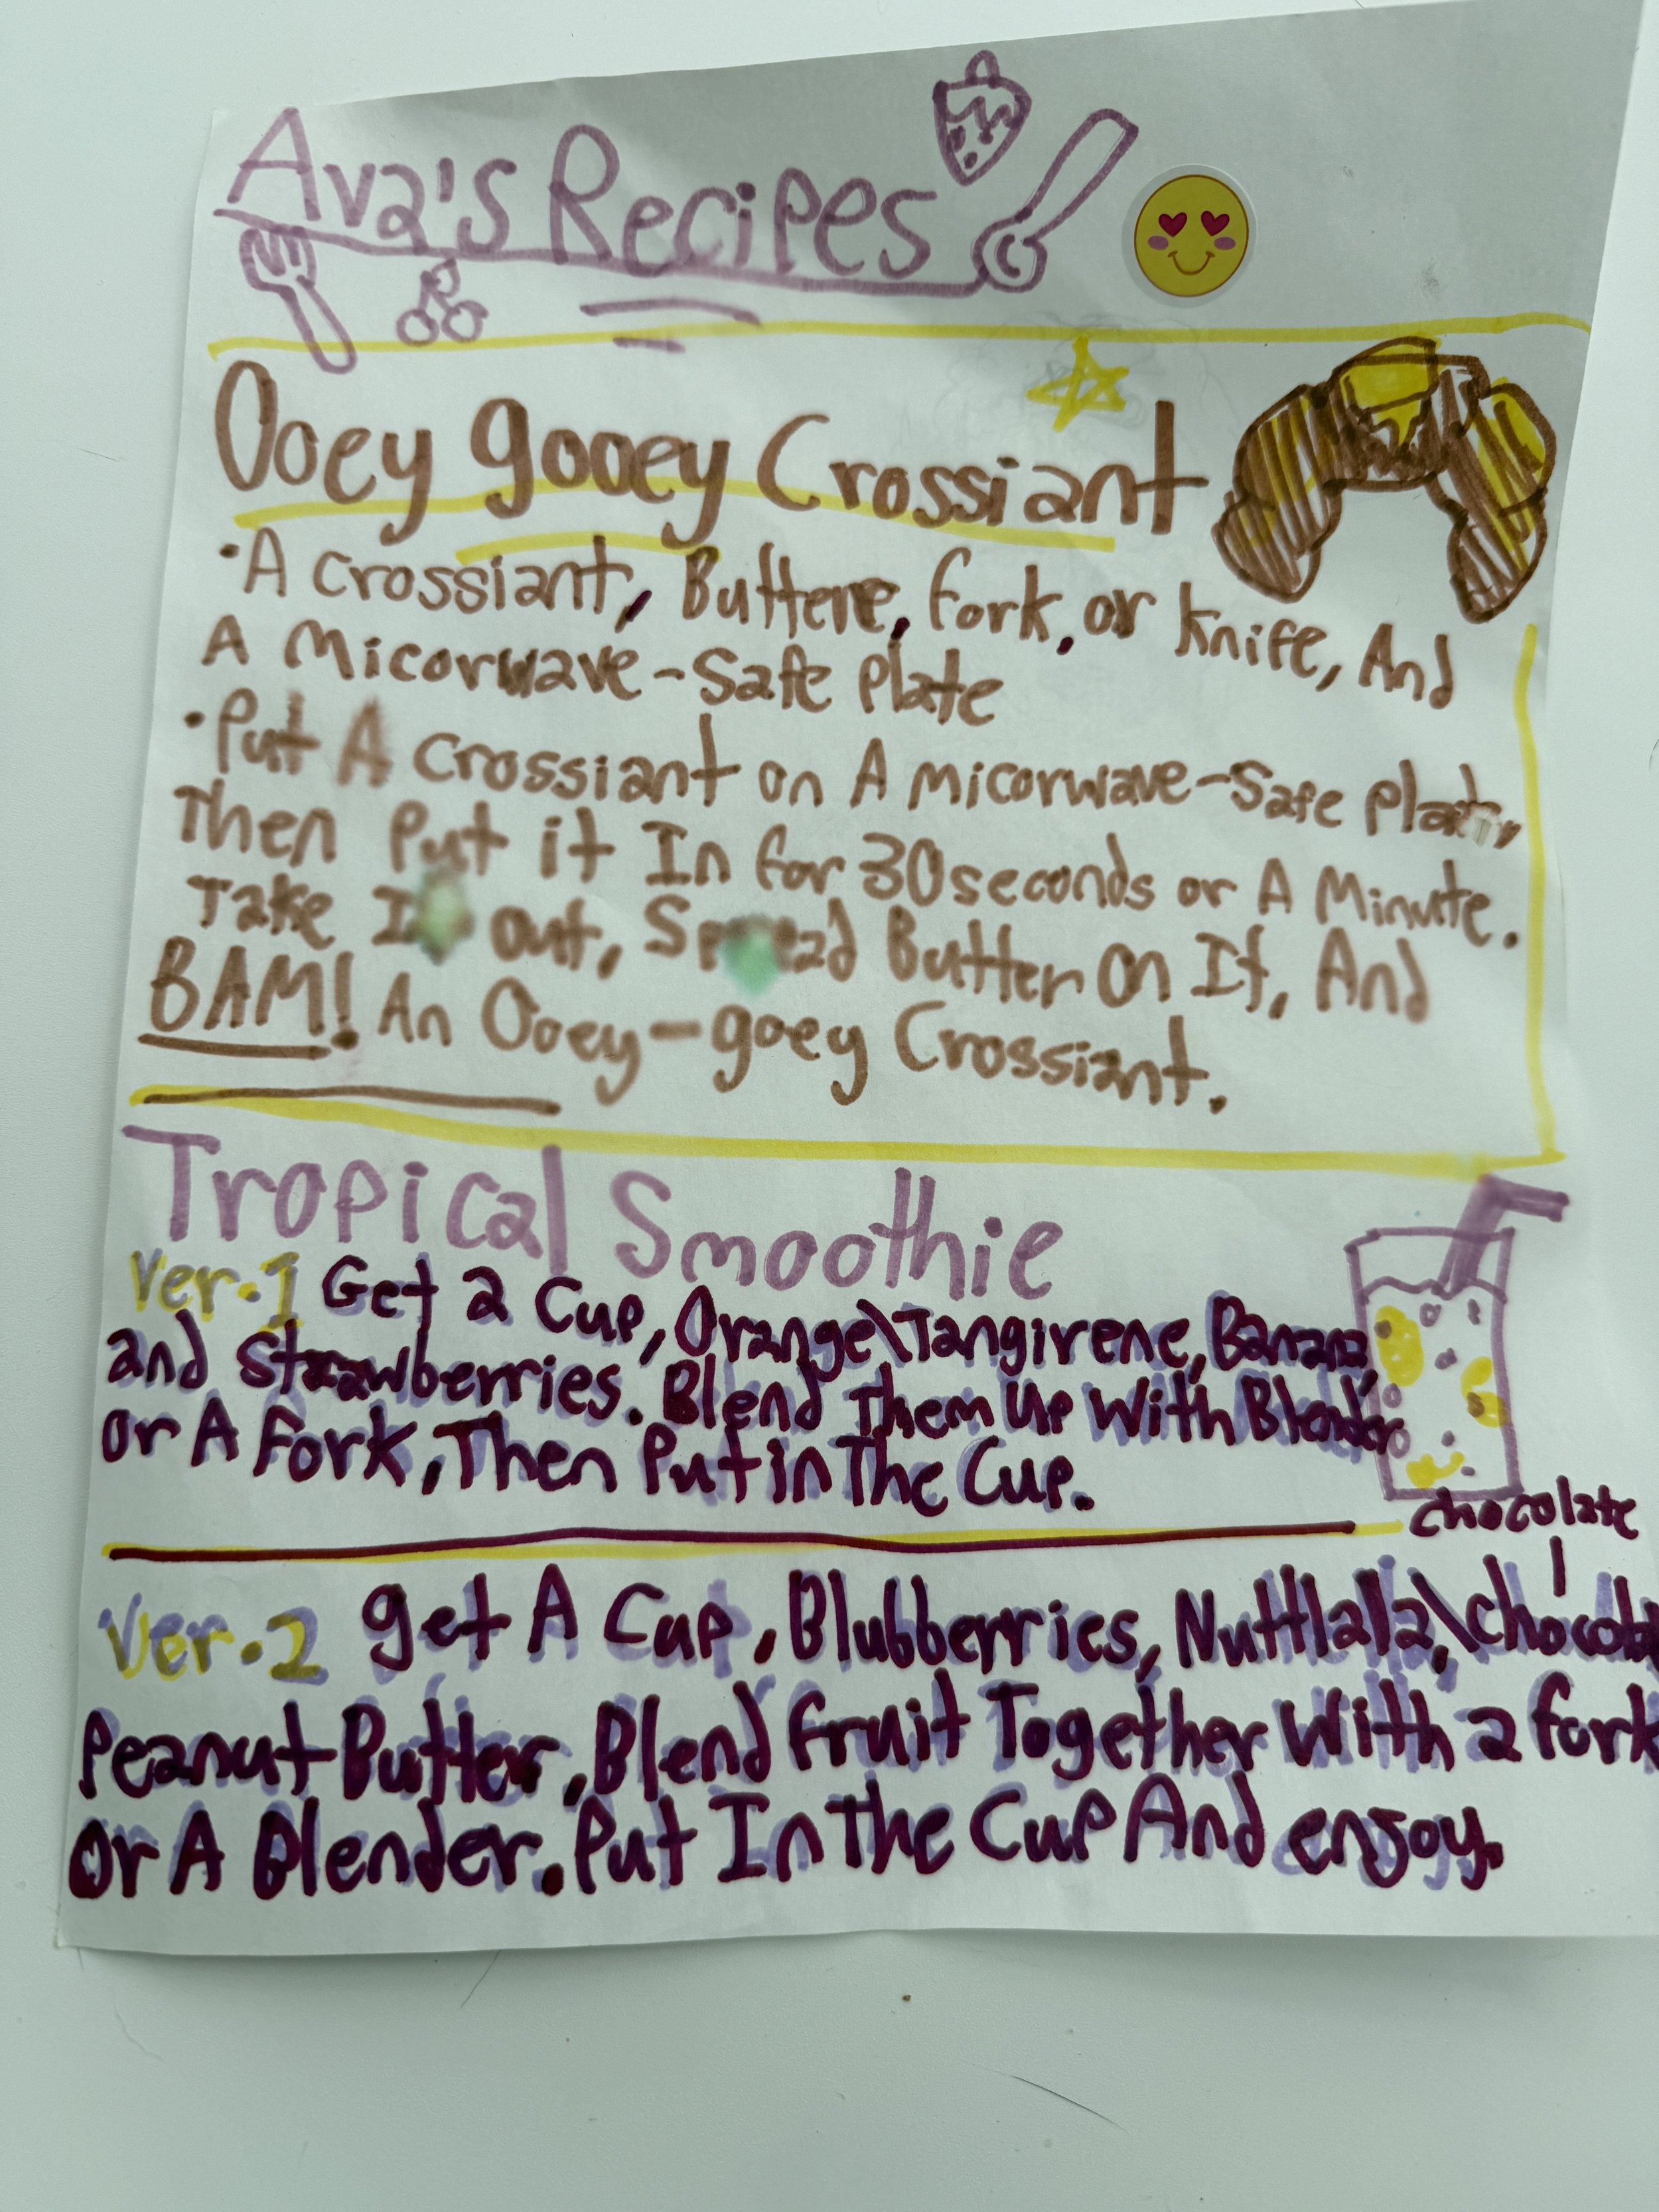 Ava's Recipes
Ooey gooey Crossiant
• A crossiant, Buttere, fork, or knife, And
A Micorwave-Safe Plate
• Put A crossiant on A micorwave-Safe plate,
Then Put it In for 30 seconds or A Minute.
Take It out, Spread Butter On It, And
BAM! An Ooey-goey Crossiant.
Tropical Smoothie
Ver.1 Get a Cup, Orange\Tangirene, Banana,
and Strawberries. Blend Them Up With Blender
or A Fork, Then Put in The Cup.
chocolate
Ver.2 get A Cup, Blubberries, Nuttlala,\
Peanut Butter, Blend fruit Together With a fork
Or A Blender. Put In The Cup And enjoy.